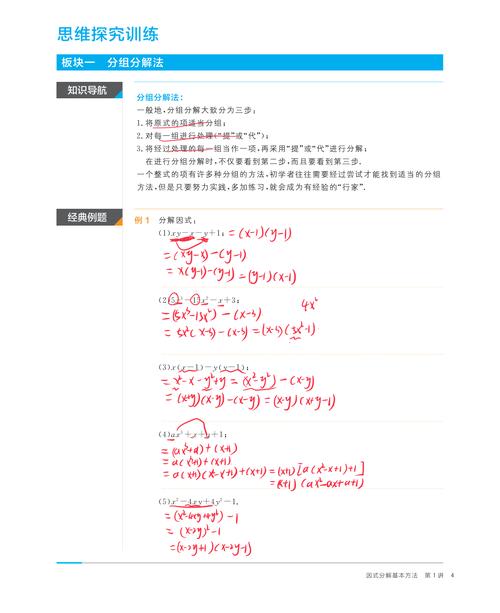 思维探究训练
板块一 分组分解法
知识导航
分组分解法:
一般地,分组分解大致分为三步:
1.将原式的项适当分组;
2.对每一组进行处理(“提”或“代”);
3.将经过处理的每一组当作一项,再采用“提”或“代”进行分解;
在进行分组分解时,不仅要看到第二步,而且要看到第三步.
一个整式的项有许多种分组的方法,初学者往往需要经过尝试才能找到适当的分组
方法,但是只要努力实践,多加练习,就会成为有经验的“行家”.
经典例题
例 1 分解因式:
(1)xy−x−y+1; =(x-1)(y-1)
=(xy-x)-(y-1)
=x(y-1)-(y-1)=(y-1)(x-1)
(2)5x³−15x²−x+3; 4x²
=(5x³-15x²)-(x-3)
=5x²(x-3)-(x-3)=(x-3)(5x²-1)
(3)x(x−1)−y(y−1);
=x²-x-y²+y=(x²-y²)-(x-y)
=(x+y)(x-y)-(x-y)=(x-y)(x+y-1)
(4)ax³+x+a+1;
=(ax³+a)+(x+1)
=a(x³+1)+(x+1)
=a(x+1)(x²-x+1)+(x+1)=(x+1)[a(x²-x+1)+1]
=(x+1)(ax²-ax+a+1)
(5)x²−4xy+4y²−1.
=(x²-4xy+4y²)-1
=(x-2y)²-1
=(x-2y+1)(x-2y-1)
因式分解基本方法 第 1 讲 4